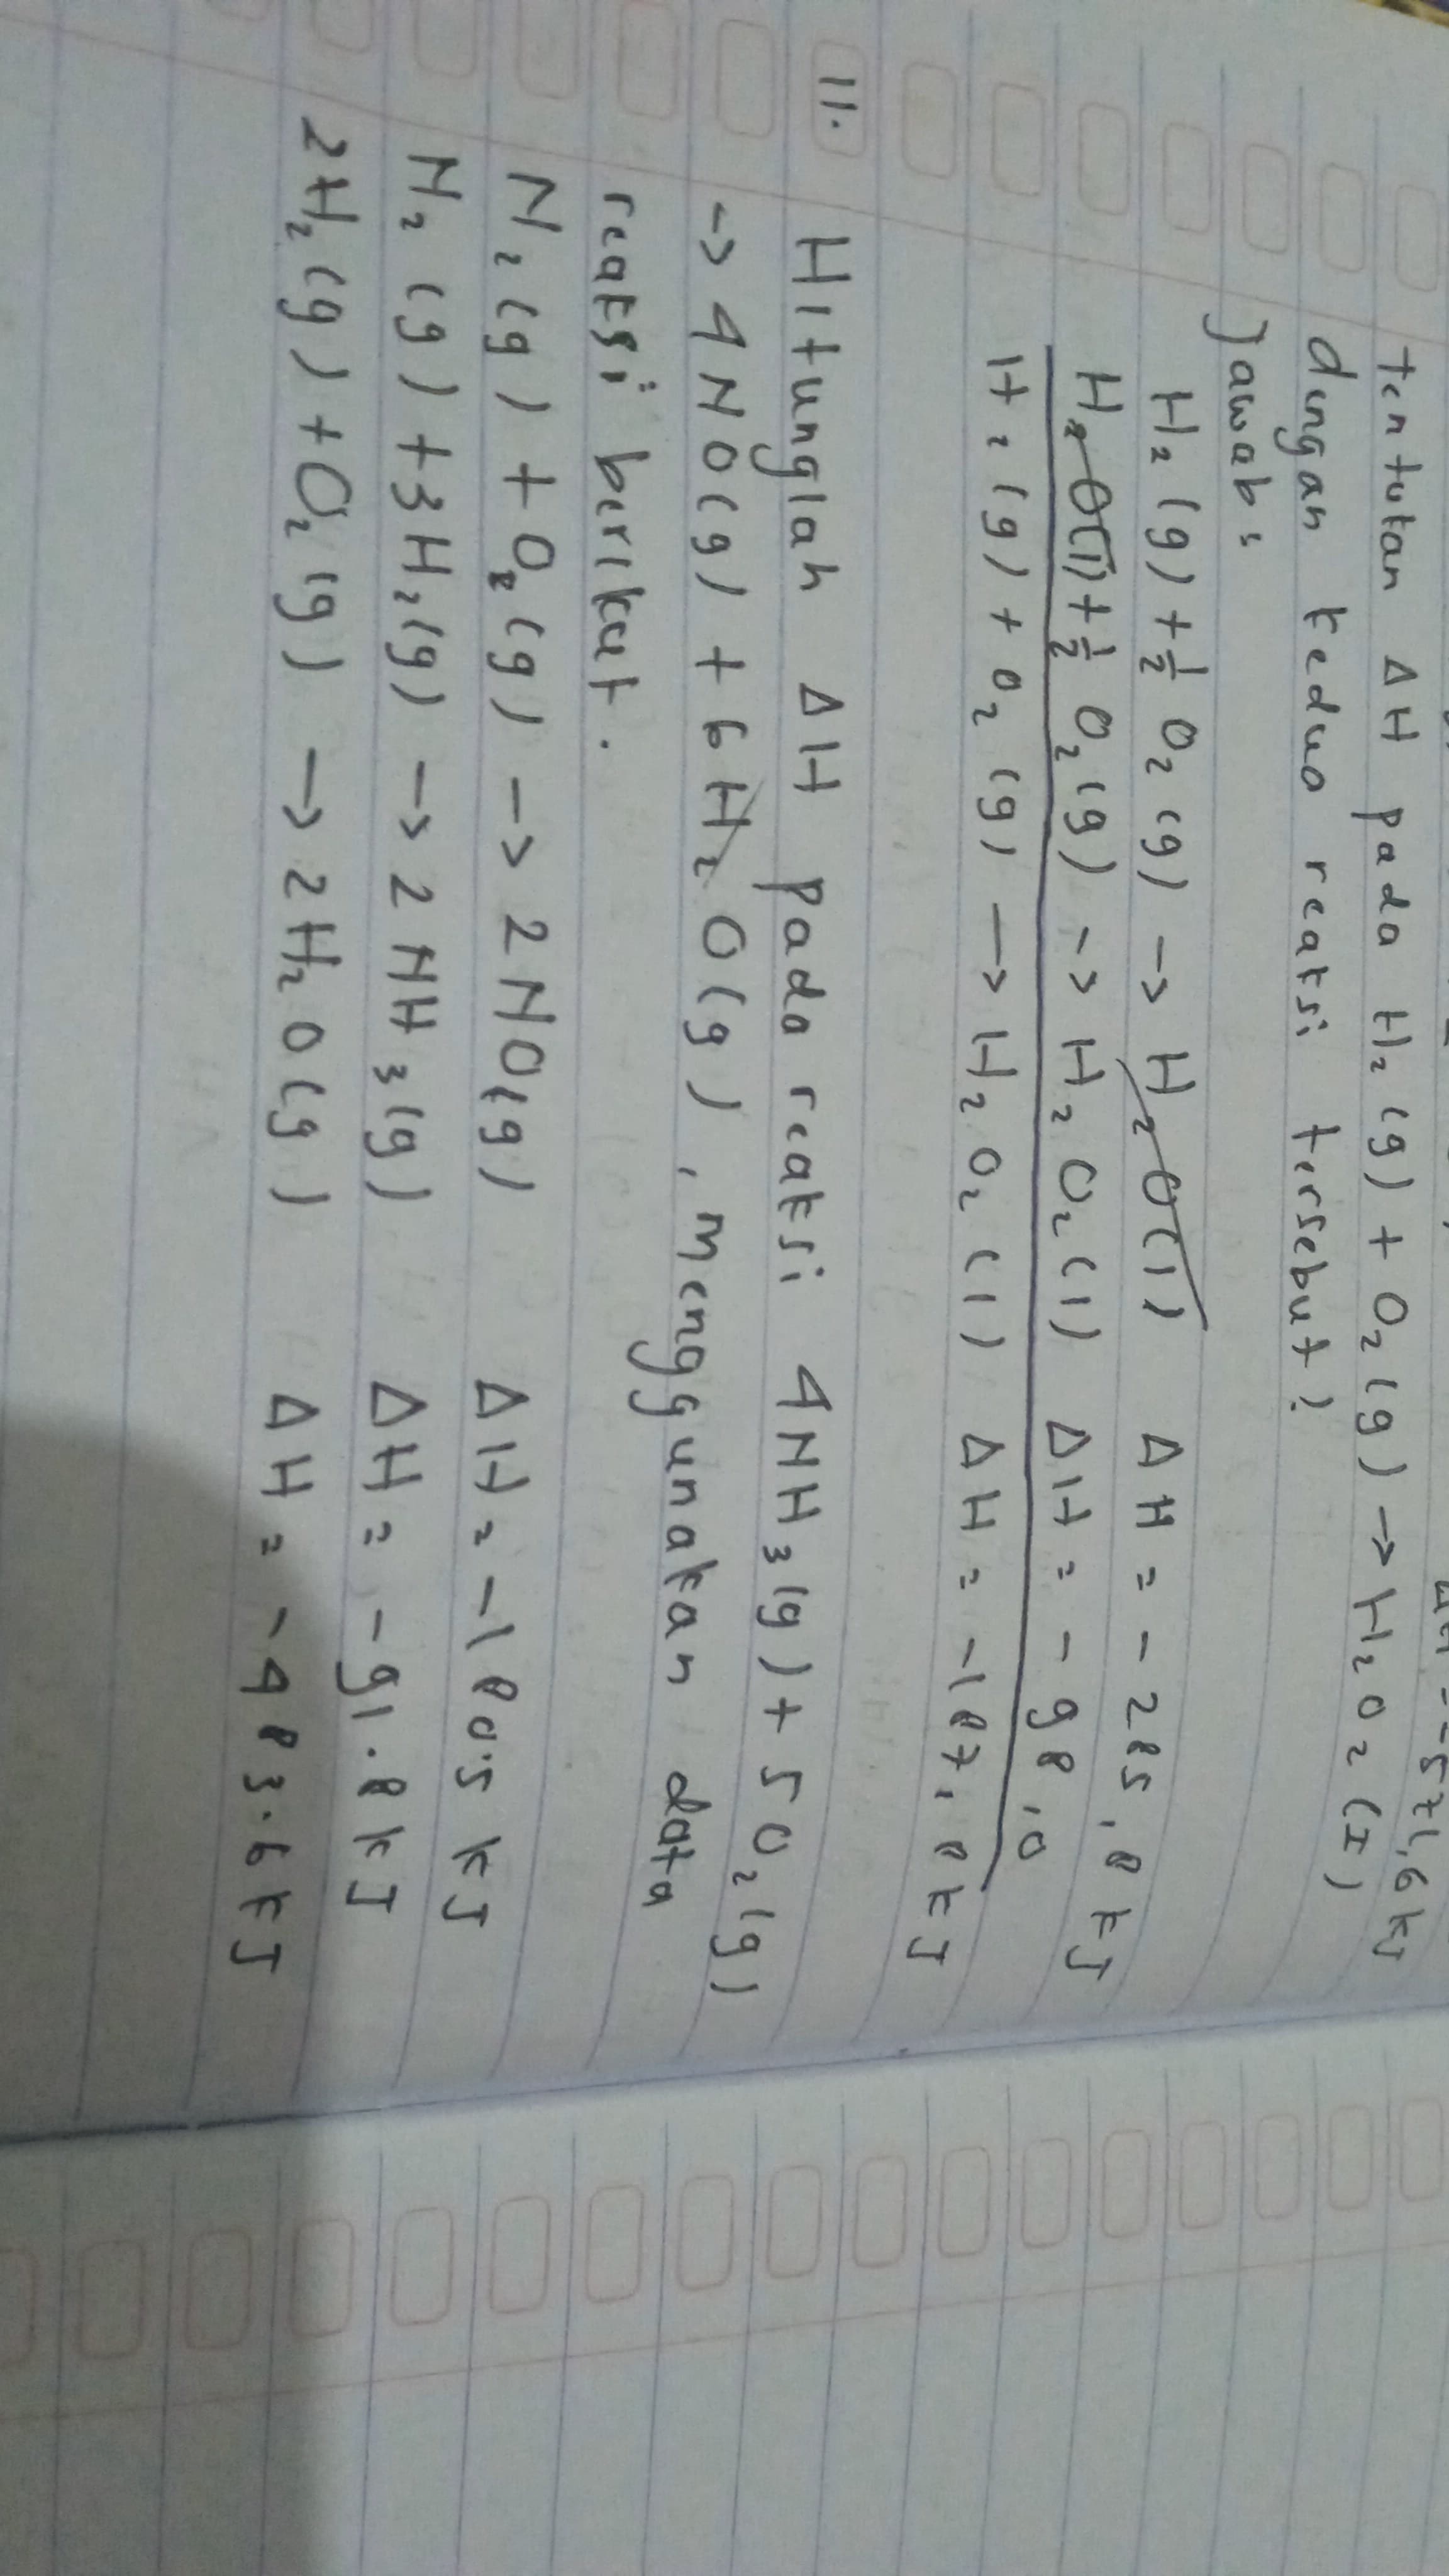 tentukan ΔH pada H₂(g) + O₂(g) → H₂O₂(I)
dengan kedua reaksi tersebut?
Jawab:
H₂(g) + ½ O₂(g) → H₂O(l) ΔH = -285,8 kJ
H₂O(l) + ½ O₂(g) → H₂O₂(l) ΔH = -98,0
H₂(g) + O₂(g) → H₂O₂(l) ΔH = -187,8 kJ
11. Hitunglah ΔH pada reaksi 4NH₃(g) + 5O₂(g)
→ 4NO(g) + 6H₂O(g), menggunakan data
reaksi berikut.
N₂(g) + O₂(g) → 2NO(g) ΔH = -180.5 kJ
N₂(g) + 3H₂(g) → 2NH₃(g) ΔH = -91.8 kJ
2H₂(g) + O₂(g) → 2H₂O(g) ΔH = -483.6 kJ